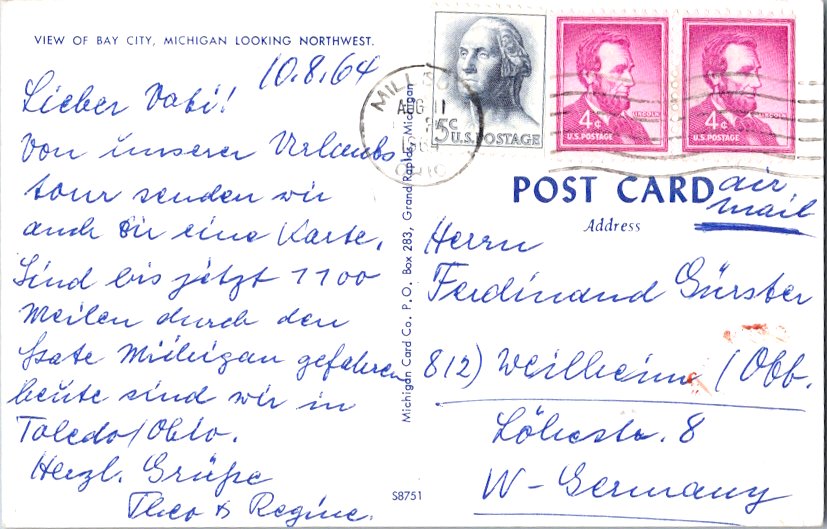 VIEW OF BAY CITY, MICHIGAN LOOKING NORTHWEST.
10.8.64
Lieber Vati!
Von unserer Urlaubs
tour senden wir
auch Dir eine Karte.
Sind bis jetzt 1100
Meilen durch den
State Michigan gefahren
heute sind wir in
Toledo/Ohio.
Herzl. Grüße
Theo & Regine.
Michigan Card Co. P. O. Box 283, Grand Rapids, Michigan
S8751
AUG 11
1964
OHIO
5c
U.S. POSTAGE
4c
LINCOLN
U.S. POSTAGE
4c
LINCOLN
U.S. POSTAGE
POST CARD
air
mail
Address
Herrn
Ferdinand Gürster
812) Weilheim / Obb.
Löhestr. 8
W-Germany